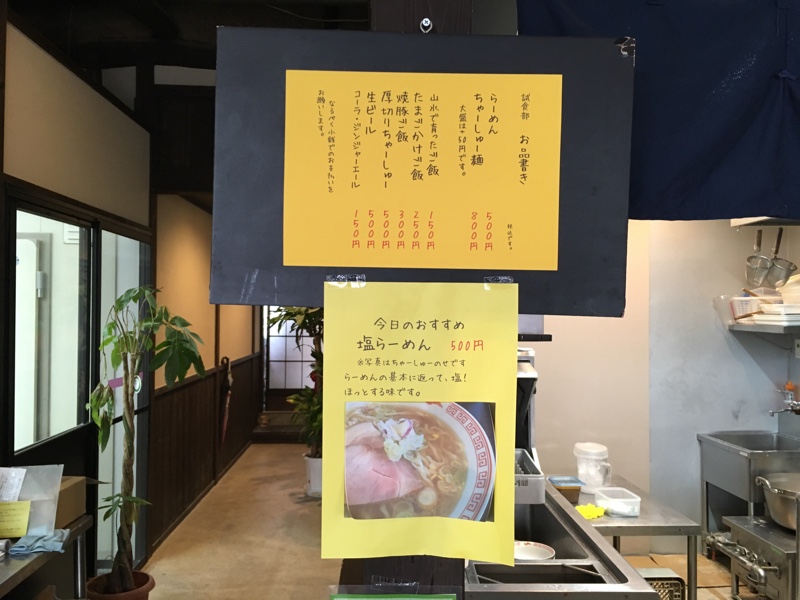 試食部　お品書き
税込です。
らーめん　500円
ちゃーしゅー麺　800円
大盛は＋50円です。
山水で育ったご飯　150円
たまごかけご飯　250円
焼豚ご飯　300円
厚切りちゃーしゅー　500円
生ビール　500円
コーラ・ジンジャーエール　150円
なるべく小銭でのお支払いを
お願いします。
今日のおすすめ
塩らーめん　500円
※写真はちゃーしゅーのせです
らーめんの基本に返って、塩!
ほっとする味です。